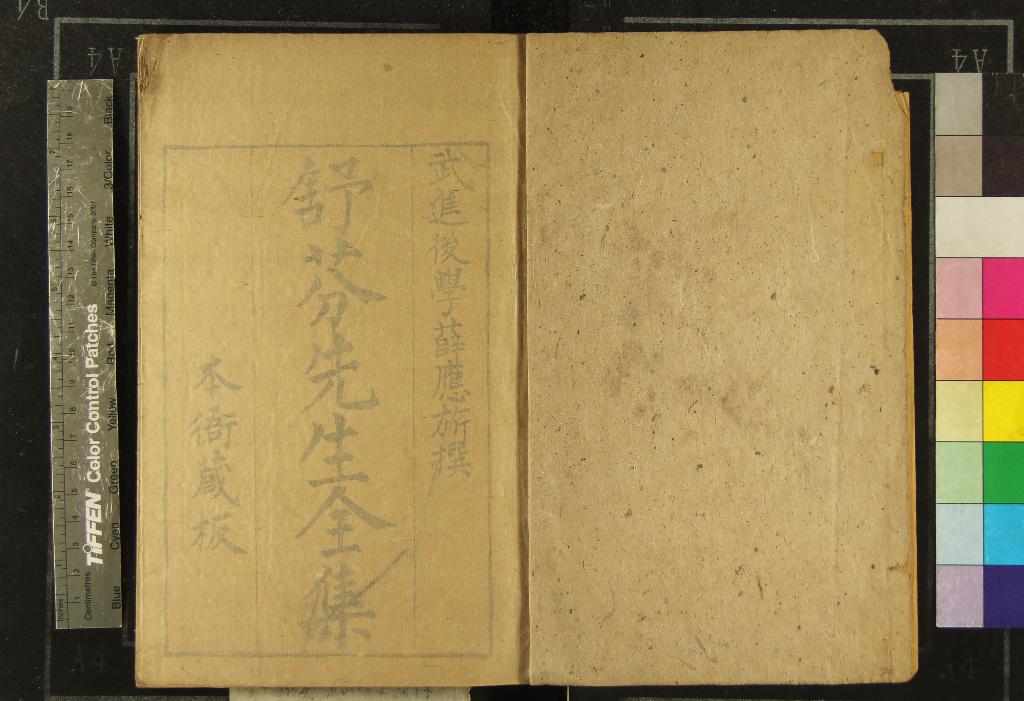 武進後學薛應旂撰
舒芬先生全集
本衙蔵板
TIFFEN Color Control Patches
© The Tiffen Company, 2007
Centimetres
Inches
Blue
Cyan
Green
Yellow
Red
Magenta
White
3/Color
Black
A4
A4
A4
A4
B4